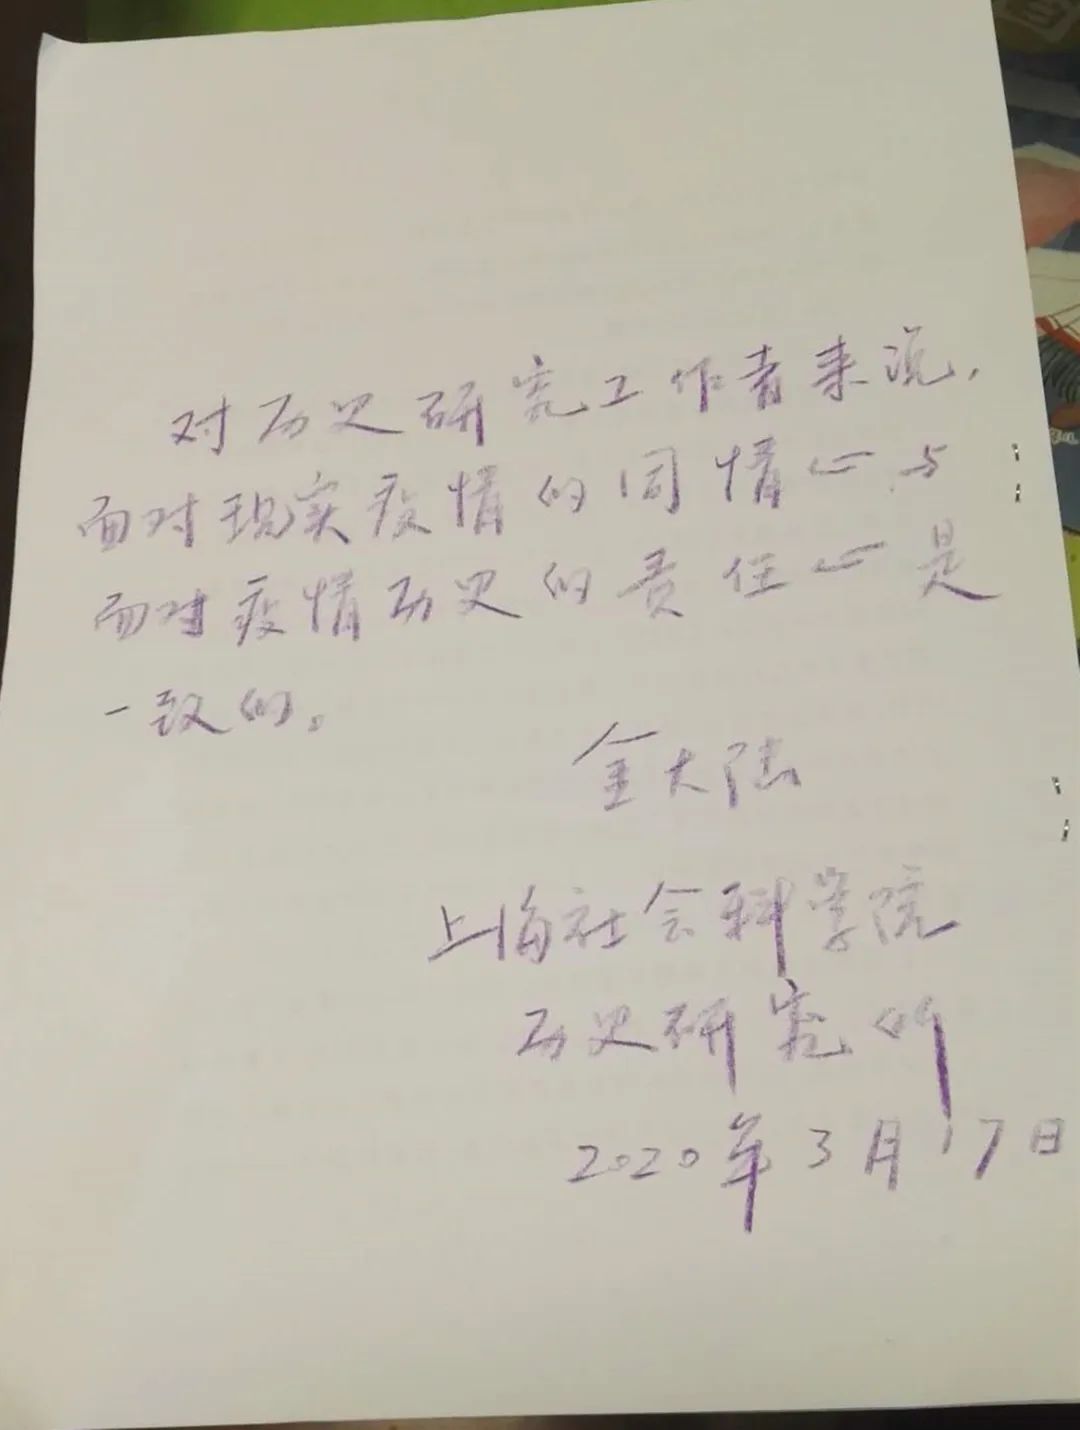 对历史研究工作者来说，
面对现实疫情的同情心与
面对疫情历史的责任心是
一致的。
金大陆
上海社会科学院
历史研究所
2020年3月17日